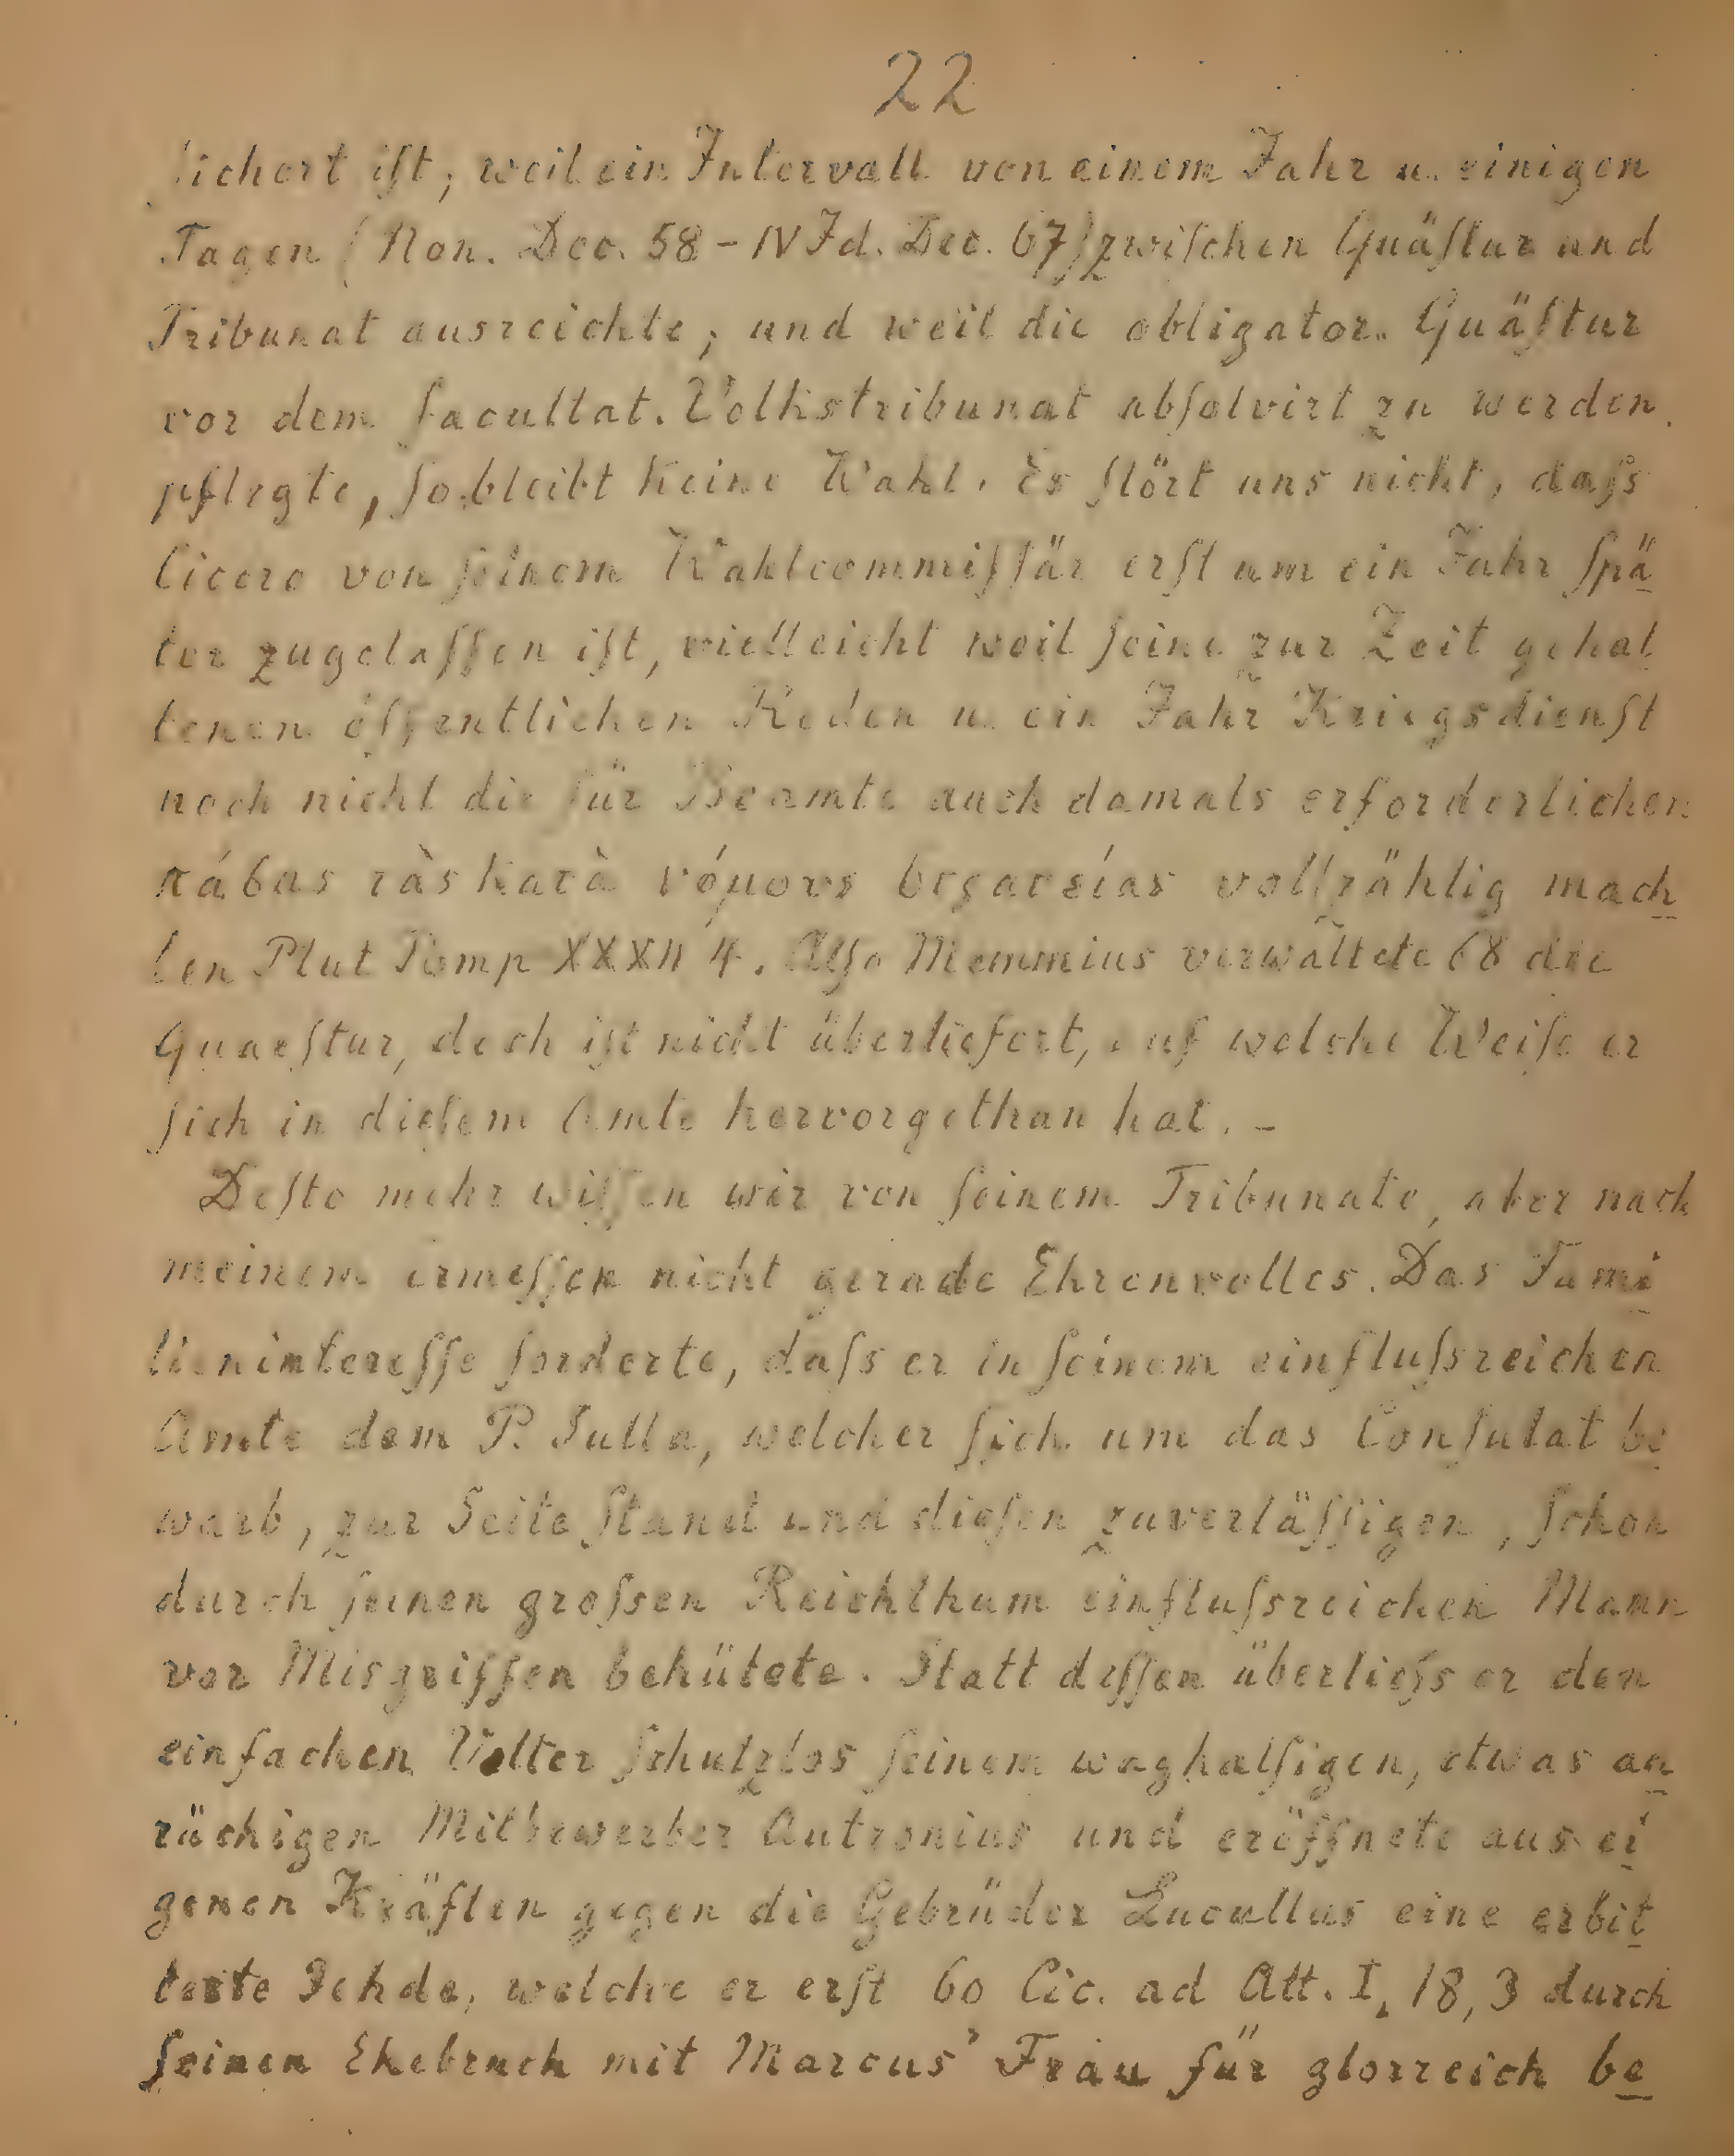 22
sichert iſt; weil ein Intervall von einem Jahr u. einigen
Tagen (Non. Dec. 58 – IV Id. Dec. 67) zwiſchen Quäſtur und
Tribunat ausreichte; und weil die obligator. Quäſtur
vor dem facultat. Volkstribunat abſolvirt zu werden
pflegte, ſo bleibt keine Wahl. Es ſtört uns nicht, daſs
Cicero von ſeinem Wahlcommiſſär erſt um ein Jahr ſpä
ter zugelaſſen iſt, vielleicht weil ſeine zur Zeit gehal
tenen öffentlichen Reden u. ein Jahr Kriegsdienſt
noch nicht die für Beamte auch damals erforderlichen
πάσας τὰς κατὰ νόμους στρατείας vollzählig mach
ten Plut Pomp XXXII 4. Alſo Memmius verwaltete 68 die
Quaeſtur, doch iſt nicht überliefert, auf welche Weiſe er
ſich in dieſem Amte hervorgethan hat. –
Deſto mehr wiſſen wir von ſeinem Tribunate, aber nach
meinem ermeſſen nicht gerade Ehrenvolles. Das Fami
lienintereſſe forderte, daſs er in ſeinem einfluſsreichen
Amte dem P. Sulla, welcher ſich um das Conſulat be
warb, zur Seite ſtand und dieſen zuverläſſigen, ſchon
durch ſeinen groſsen Reichthum einfluſsreichen Mann
vor Misgriffen behütete. Statt deſſen überlieſs er den
einfachen Vetter ſchutzlos ſeinem waghalſigen, etwas an
rüchigen Mitbewerber Autronius und eröffnete aus ei
genen Kräften gegen die Gebrüder Lucullus eine erbit
terte Fehde, welche er erſt 60 Cic. ad Att. I, 18, 3 durch
ſeinen Ehebruch mit Marcus' Frau für glorreich be